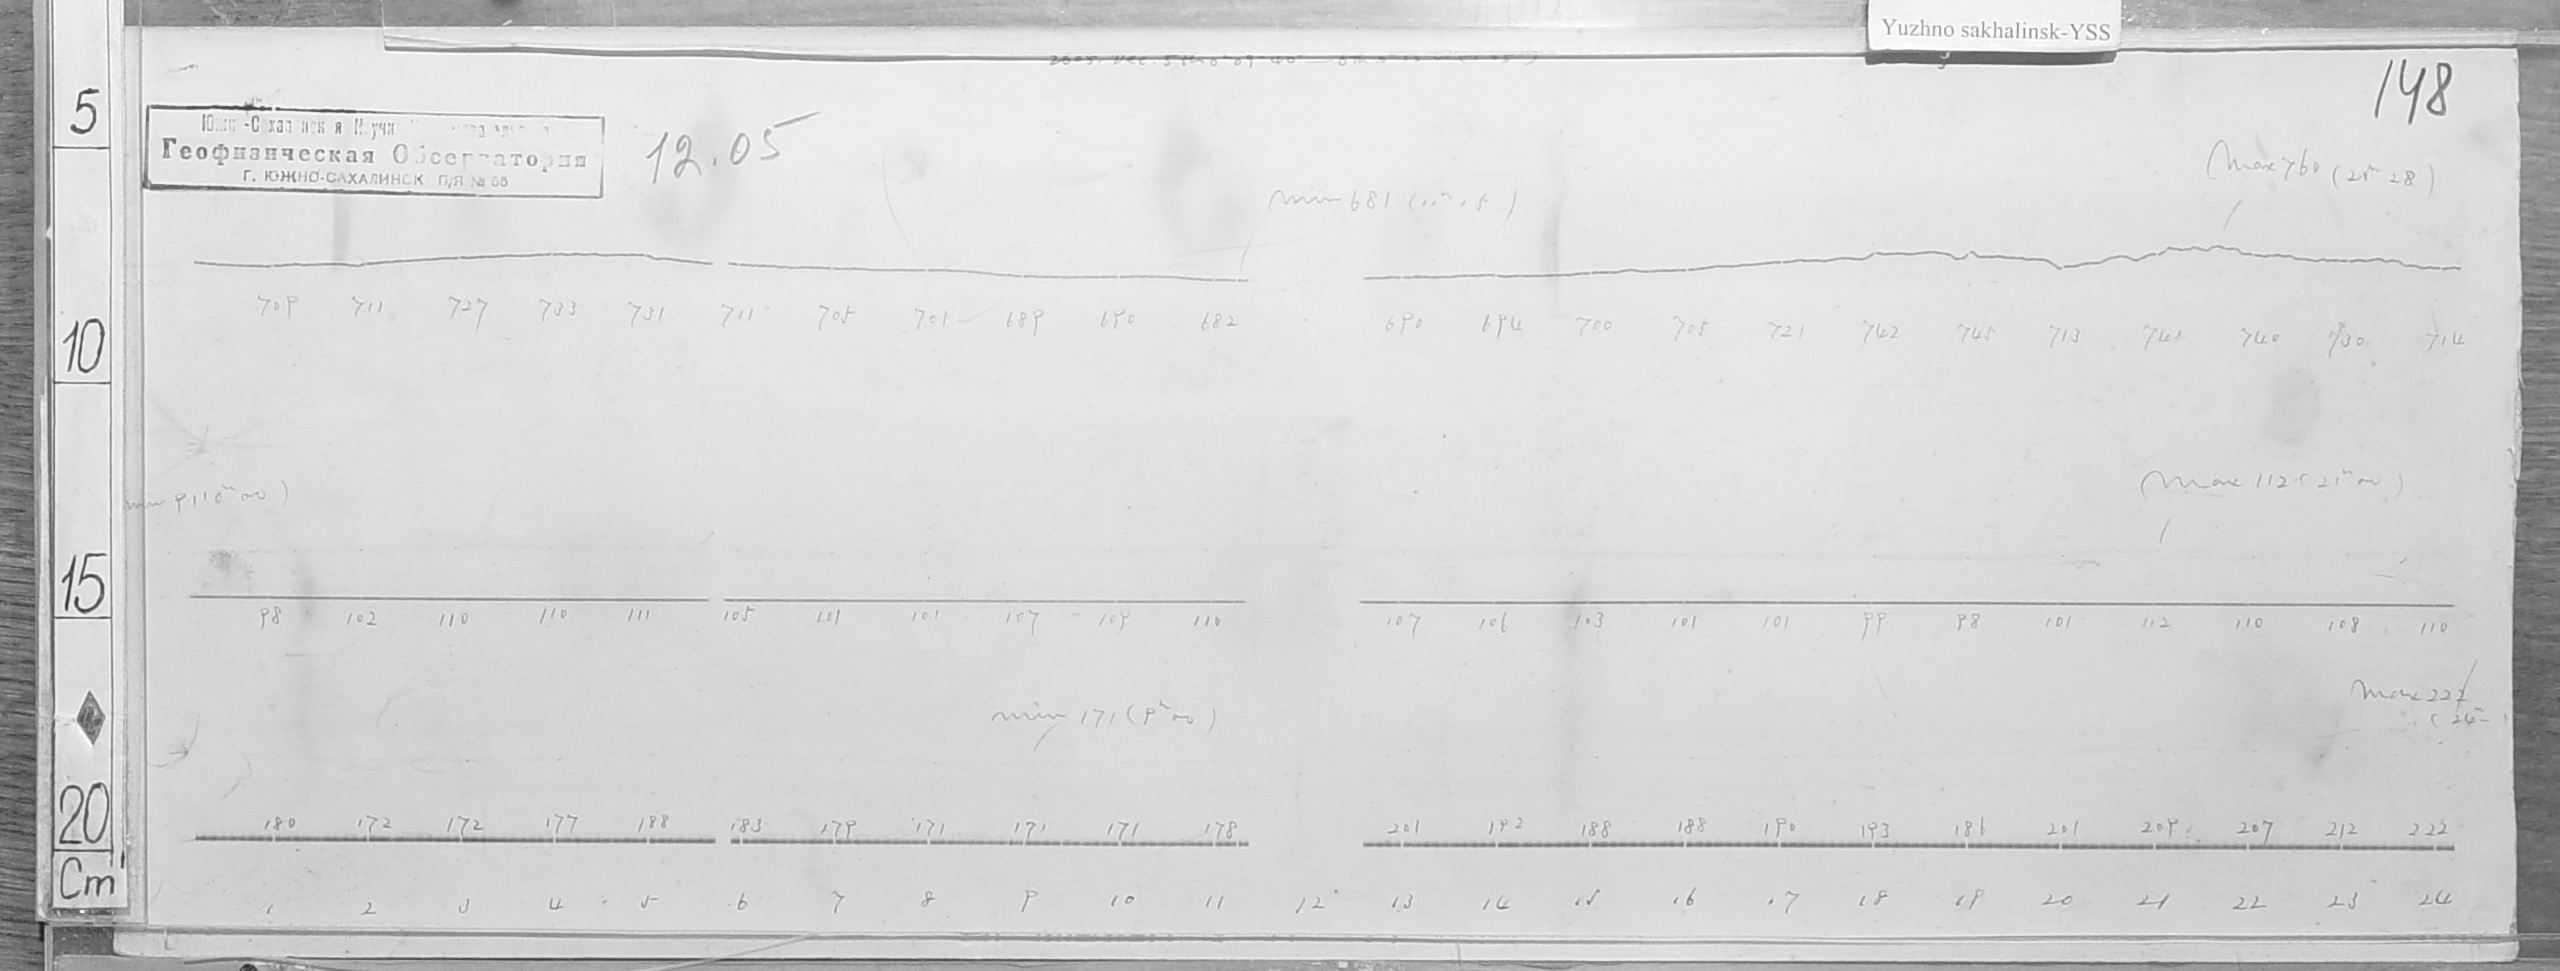 Yuzhno sakhalinsk-YSS
148
5
Геофизическая Обсерватория
г. ЮЖНО-САХАЛИНСК П/Я № 55
12.05
max 760 (21ʰ 28)
min 681 (11ʰ 15)
709 711 727 733 731 711 705 701 689 690 682 690 694 700 705 721 742 745 713 741 740 730 714
10
max 112 (21ʰ 00)
15
98 102 110 110 111 105 101 101 107 109 110 107 106 103 101 101 99 98 101 112 110 108 110
min 171 (9ʰ 00)
20
180 172 172 177 188 183 179 171 171 171 178 201 192 188 188 190 193 186 201 209 207 212 222
Cm
1 2 3 4 5 6 7 8 9 10 11 12 13 14 15 16 17 18 19 20 21 22 23 24